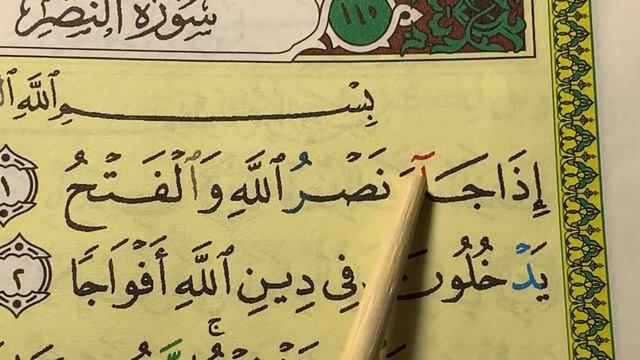 سُورَةُ النَّصْرِ
١١٠
بِسْمِ ٱللَّهِ
إِذَا جَآءَ نَصْرُ ٱللَّهِ وَٱلْفَتْحُ ١
يَدْخُلُونَ فِى دِينِ ٱللَّهِ أَفْوَاجًا ٢